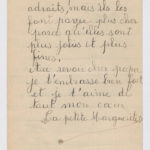 adroits, mais ils les
font payer plus cher
parce qu'elles sont
plus jolies et plus
fines.
Au revoir cher papa
je t'embrasse bien fort
et je t'aime de
tout mon cœur
La petite Marguerite